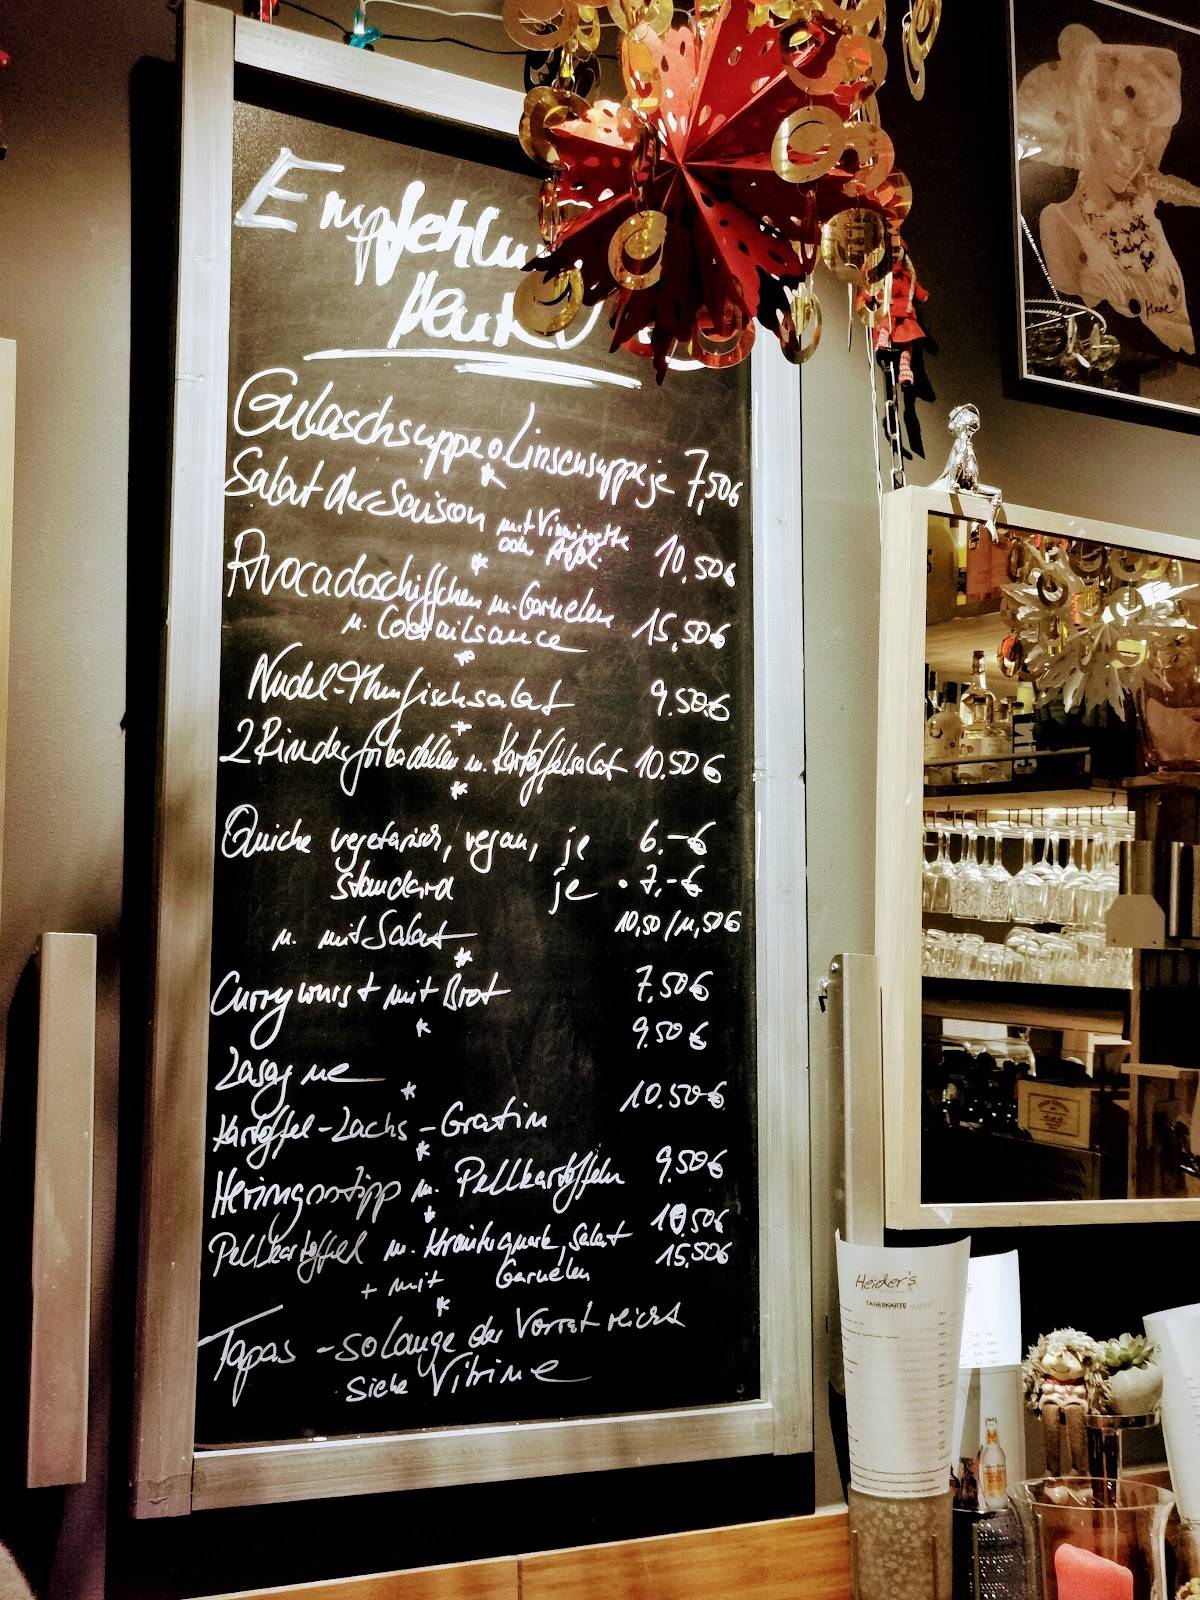 Empfehlun
Heute
Gulaschsuppe o. Linsensuppe je 7,50€
*
Salat der Saison mit Vinaigrette 10.50€
oder
*
Avocadoschiffchen m. Garnelen
u. Coctailsauce 15,50€
*
Nudel-Thunfischsalat 9.50€
*
2 Rinderfrikadellen m. Kartoffelsalat 10.50€
*
Quiche vegetarisch, vegan, je 6.-€
standard je 7,-€
u. mit Salat 10,50/11,50€
*
Currywurst mit Brot 7.50€
*
Lasagne 9.50€
*
Kartoffel-Lachs-Gratin 10.50€
*
Heringsstipp m. Pellkartoffeln 9,50€
*
Pellkartoffel m. Kräuterquark, Salat 10,50€
+ mit Garnelen 15,50€
*
Tapas - solange der Vorrat reicht
siehe Vitrine
Heider's
TAGESKARTE